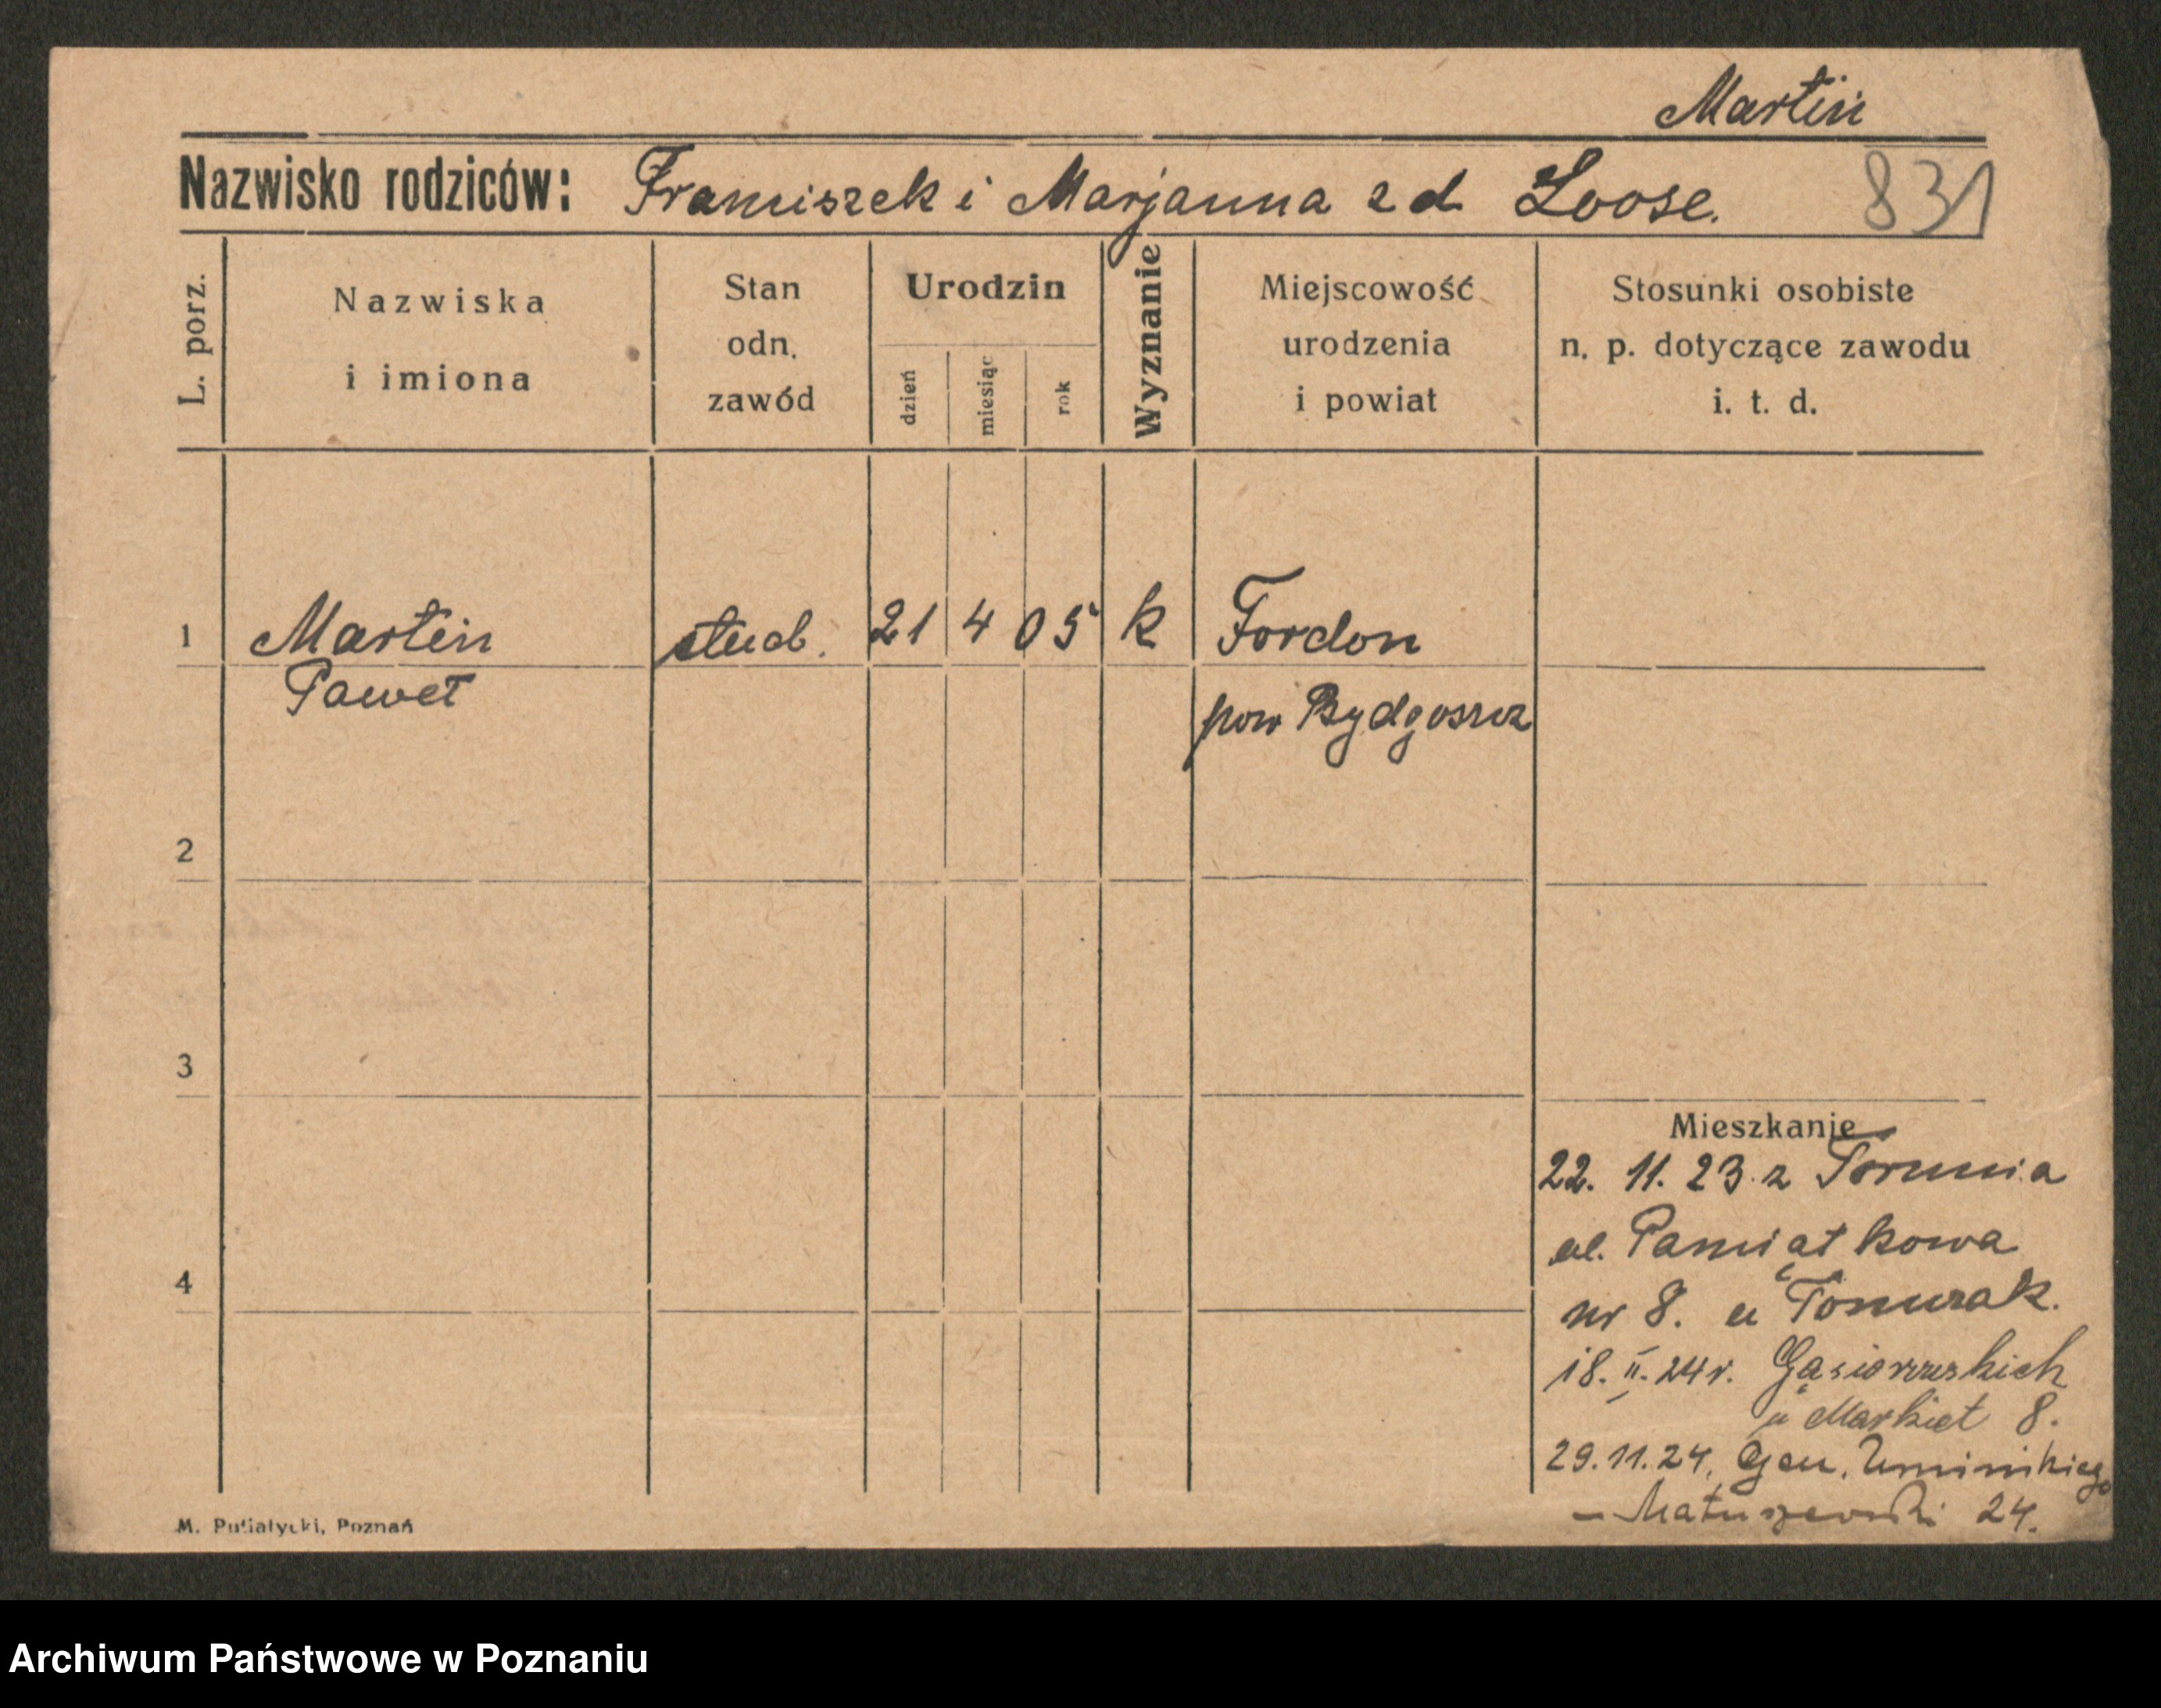 Martin
Nazwisko rodziców: Franciszek i Marjanna z d Loose. 831
L. porz.
Nazwiska
i imiona
Stan
odn.
zawód
Urodzin
dzień
miesiąc
rok
Wyznanie
Miejscowość
urodzenia
i powiat
Stosunki osobiste
n. p. dotyczące zawodu
i. t. d.
1 Martin stud. 21 4 05 k Fordon
Paweł pow Bydgoszcz
2
3
Mieszkanie
22. 11. 23 z Torunia
ul. Pamiątkowa
4
nr 8. u
18. II. 24 r. Gąsiorowskich
u 8.
29.11.24, Gen. Umińskiego
– Matuszewski 24.
M. Putiatycki, Poznań
Archiwum Państwowe w Poznaniu